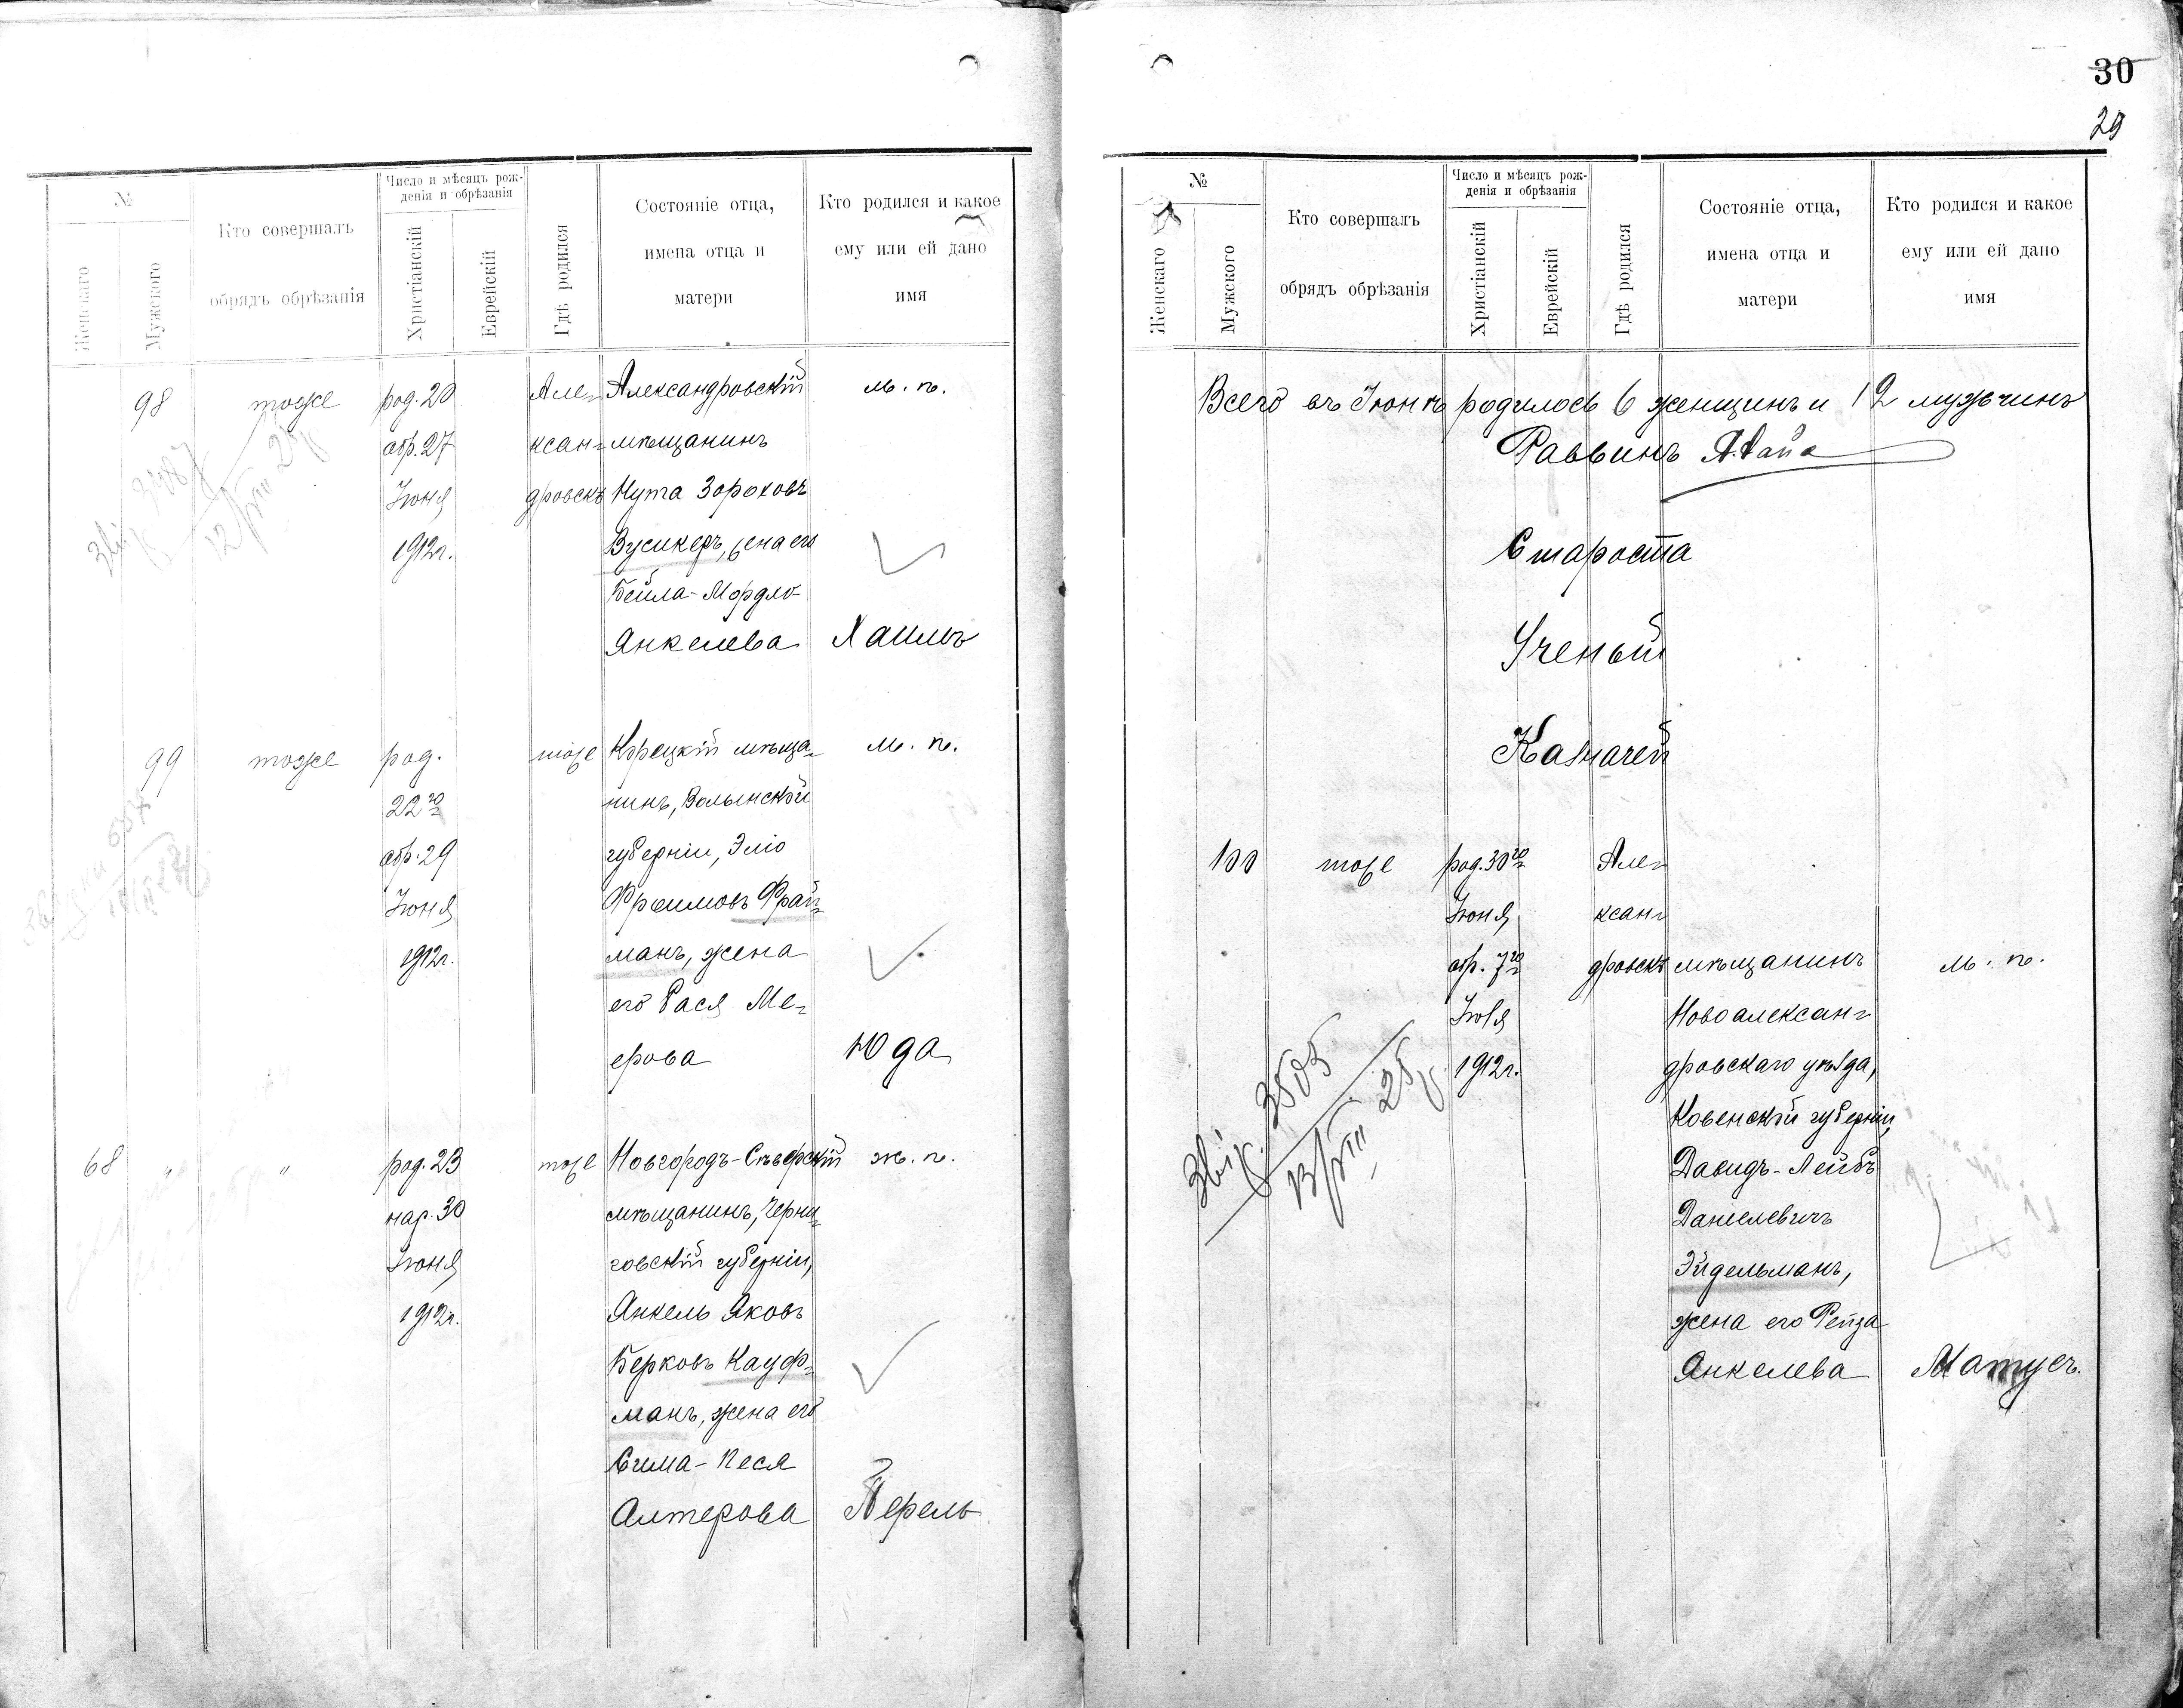 №
Женскаго
Мужского
Кто совершалъ
обрядъ обрѣзанія
Число и мѣсяцъ рож-
денія и обрѣзанія
Христіанскій
Еврейскій
Гдѣ родился
Состояніе отца,
имена отца и
матери
Кто родился и какое
ему или ей дано
имя
98 тоже род. 20 Але- Александровскій м. п.
обр. 27 ксан- мѣщанинъ
Іюня дровскъ Нута Зороховъ
1912г. Вусикеръ, жена его
Бейла-Мордко
Янкелева Хаимъ
99 тоже род. тоже Корецкій мѣща- м. п.
22го нинъ, Волынской
обр. 29 губерніи, Эліо
Іюня Фроимовъ Фрай-
1912г. манъ, жена
его Рася Ме-
ерова Юда
68 " " род. 23 тоже Новгородъ-Сѣверскій ж. п.
нар. 30 мѣщанинъ, Черни-
Іюня говской губерніи,
1912г. Янкель Яковъ
Берковъ Кауф-
манъ, жена его
Сима-Песя
Алтерова Перель
30
29
№
Женскаго
Мужского
Кто совершалъ
обрядъ обрѣзанія
Число и мѣсяцъ рож-
денія и обрѣзанія
Христіанскій
Еврейскій
Гдѣ родился
Состояніе отца,
имена отца и
матери
Кто родился и какое
ему или ей дано
имя
Всего въ Іюнѣ родилось 6 женщинъ и 12 мужчинъ
Раввинъ
Староста
Ученый
Казначей
100 тоже род. 30го Але-
Іюня ксан-
обр. 7го дровскъ мѣщанинъ м. п.
Іюля Новоалексан-
1912г. дровскаго уѣзда,
Ковенской губерніи,
Давидъ-Лейбъ
Даніелевичъ
Эйдельманъ,
жена его Рейза
Янкелева Матусъ.
Звір. 3505
13/VIII 25